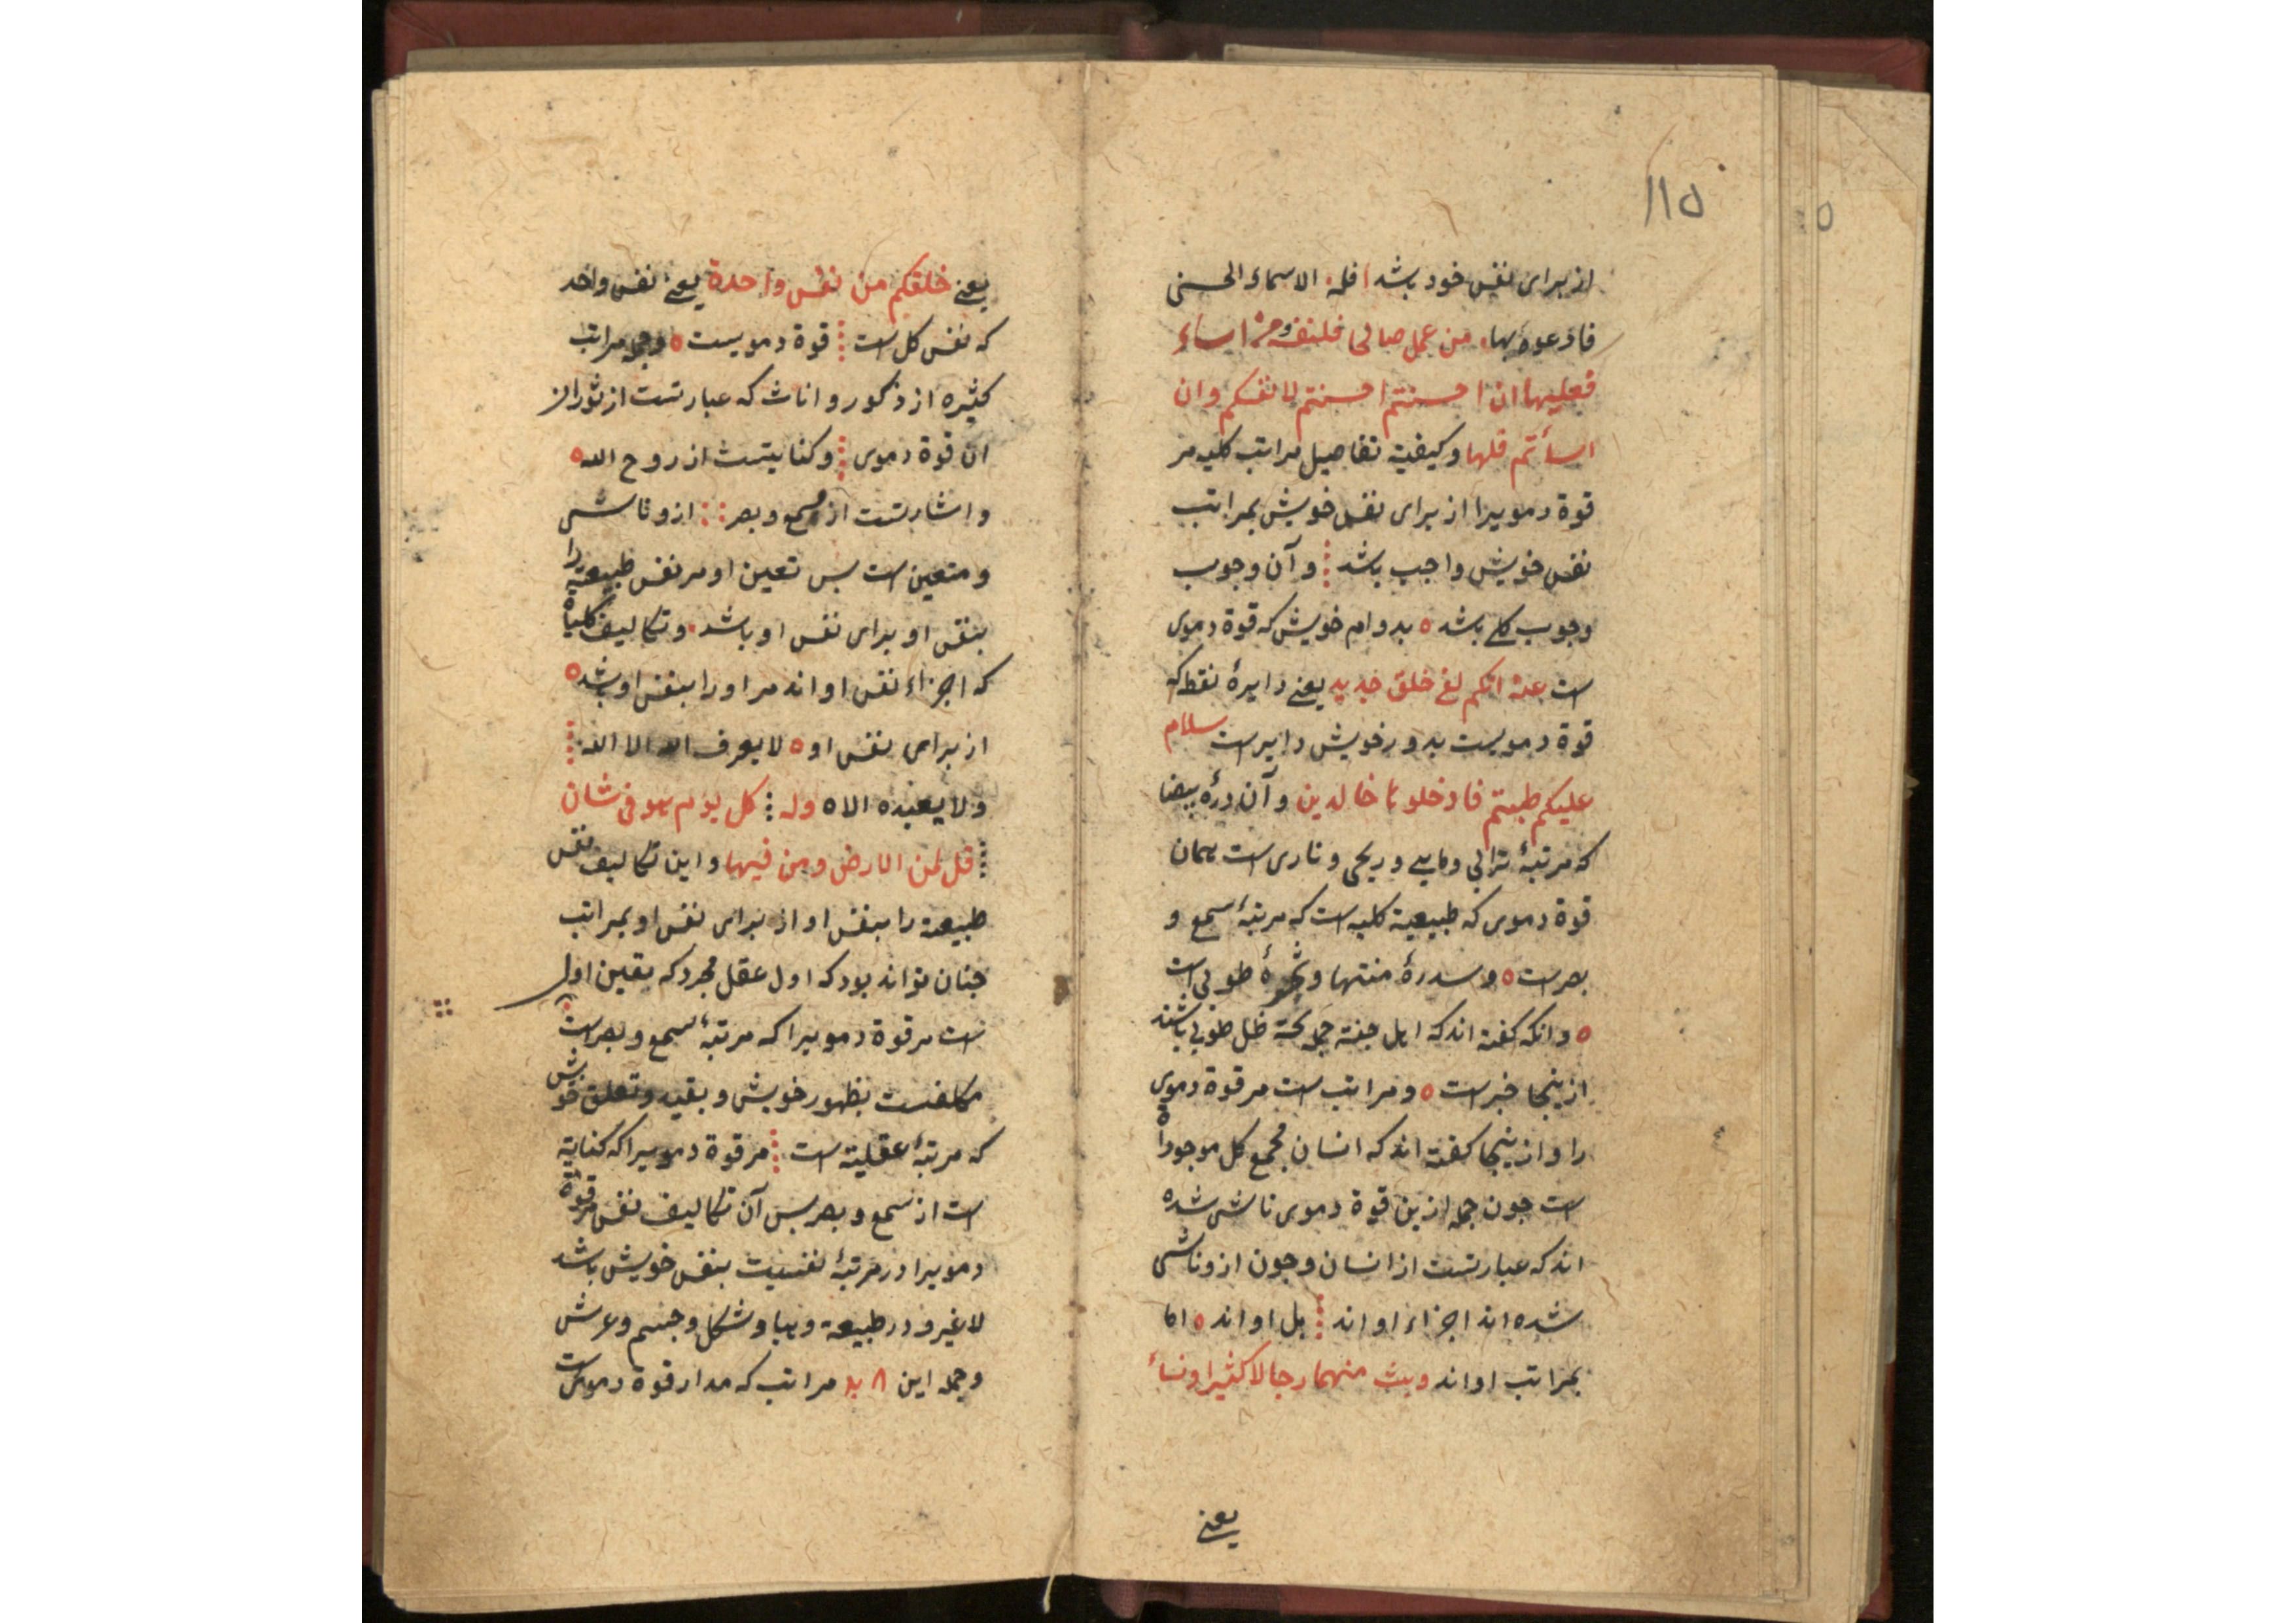 ۱۱۵
از برای نفس خود باشد فله الاسماء الحسنی
فادعوه بها من عمل صالحا فلنفسه ومن اساء
فعلیها ان احسنتم احسنتم لانفسکم وان
اسأتم فلها وکیفیة تفاصیل مراتب کلیه مر
قوة دمویرا از برای نفس خویش بمراتب
نفس خویش واجب باشد و آن وجوب
وجوب کلی باشد بدوام خویش که قوة دموی
است انکم لفی خلق جدید یعنی دایرهٔ نقطه که
قوة دمویست بدور خویش دایرست سلام
علیکم طبتم فادخلوها خالدین و آن درهٔ بیضا
که مرتبهٔ ترابی ومایی و ریحی و ناری است همان
قوة دموی که طبیعیة کلیه است که مرتبهٔ سمع و
بصرست و سدرهٔ منتها و شجرهٔ طوبی است
وانکه کفته اند که اهل جنة جمله تحت ظل طوبی باشند
ازینجا خبرست و مراتب است مر قوة دموی
را و ازینجا کفته اند که انسان مجمع کل موجوداة
است جون جمله ازین قوة دموی ناشی شده
اند که عبارتست از انسان و جون ازو ناشی
شده اند اجزاء او اند بل او اند اما
بمراتب او اند وبث منهما رجالا کثیرا ونسأ
یعنی
یعنی خلقکم من نفس واحدة یعنی نفس واحد
که نفس کل است قوة دمویست وجمله مراتب
کثیره از ذکور و اناث که عبارتست از نور از
ان قوة دموی و کنایتست از روح الله
و اشارتست از سمع و بصر ازو ناشی
و متعین است بس تعین او مر نفس طبیعته را
بنفس او برای نفس او باشد و تکالیف کلیاة
که اجزاء نفس او اند مر او را بنفس او باشد
از برای نفس او لایعرف الله الا الله
ولا یعبده الاه وله کل یوم هو فی شان
قل لمن الارض ومن فیها و این تکالیف نفس
طبیعه را بنفس او از برای نفس او بمراتب
جنان تواند بود که اول عقل مجرد که یقین اول
است مر قوة دمویرا که مرتبهٔ سمع و بصراست
مکلفست بظهور خویش و بقید و تعلق خویش
که مرتبهٔ عقلیة است مر قوة دمویرا که کنایة
است از سمع و بصر بس آن تکالیف نفس مر قوة
دمویرا در مرتبهٔ نفسیت بنفس خویش باشد
لاغیر و در طبیعه و هبا و شکل و جسم و عرش
وجمله این ۸ ید مراتب که مدار قوة دمویست